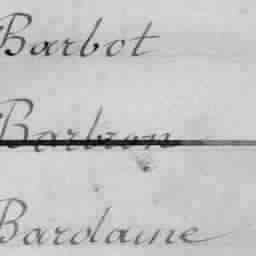 Barbot
Barbron
Bardaine